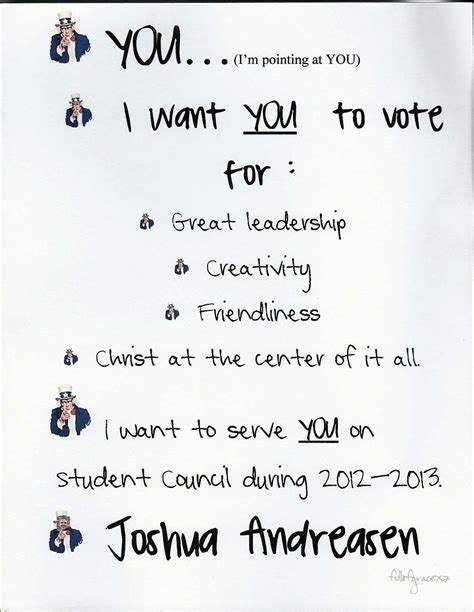 YOU... (I'm pointing at YOU)
I want YOU to vote
for :
Great leadership
Creativity
Friendliness
Christ at the center of it all.
I want to serve YOU on
Student Council during 2012-2013.
Joshua Andreasen
fullofgracex7